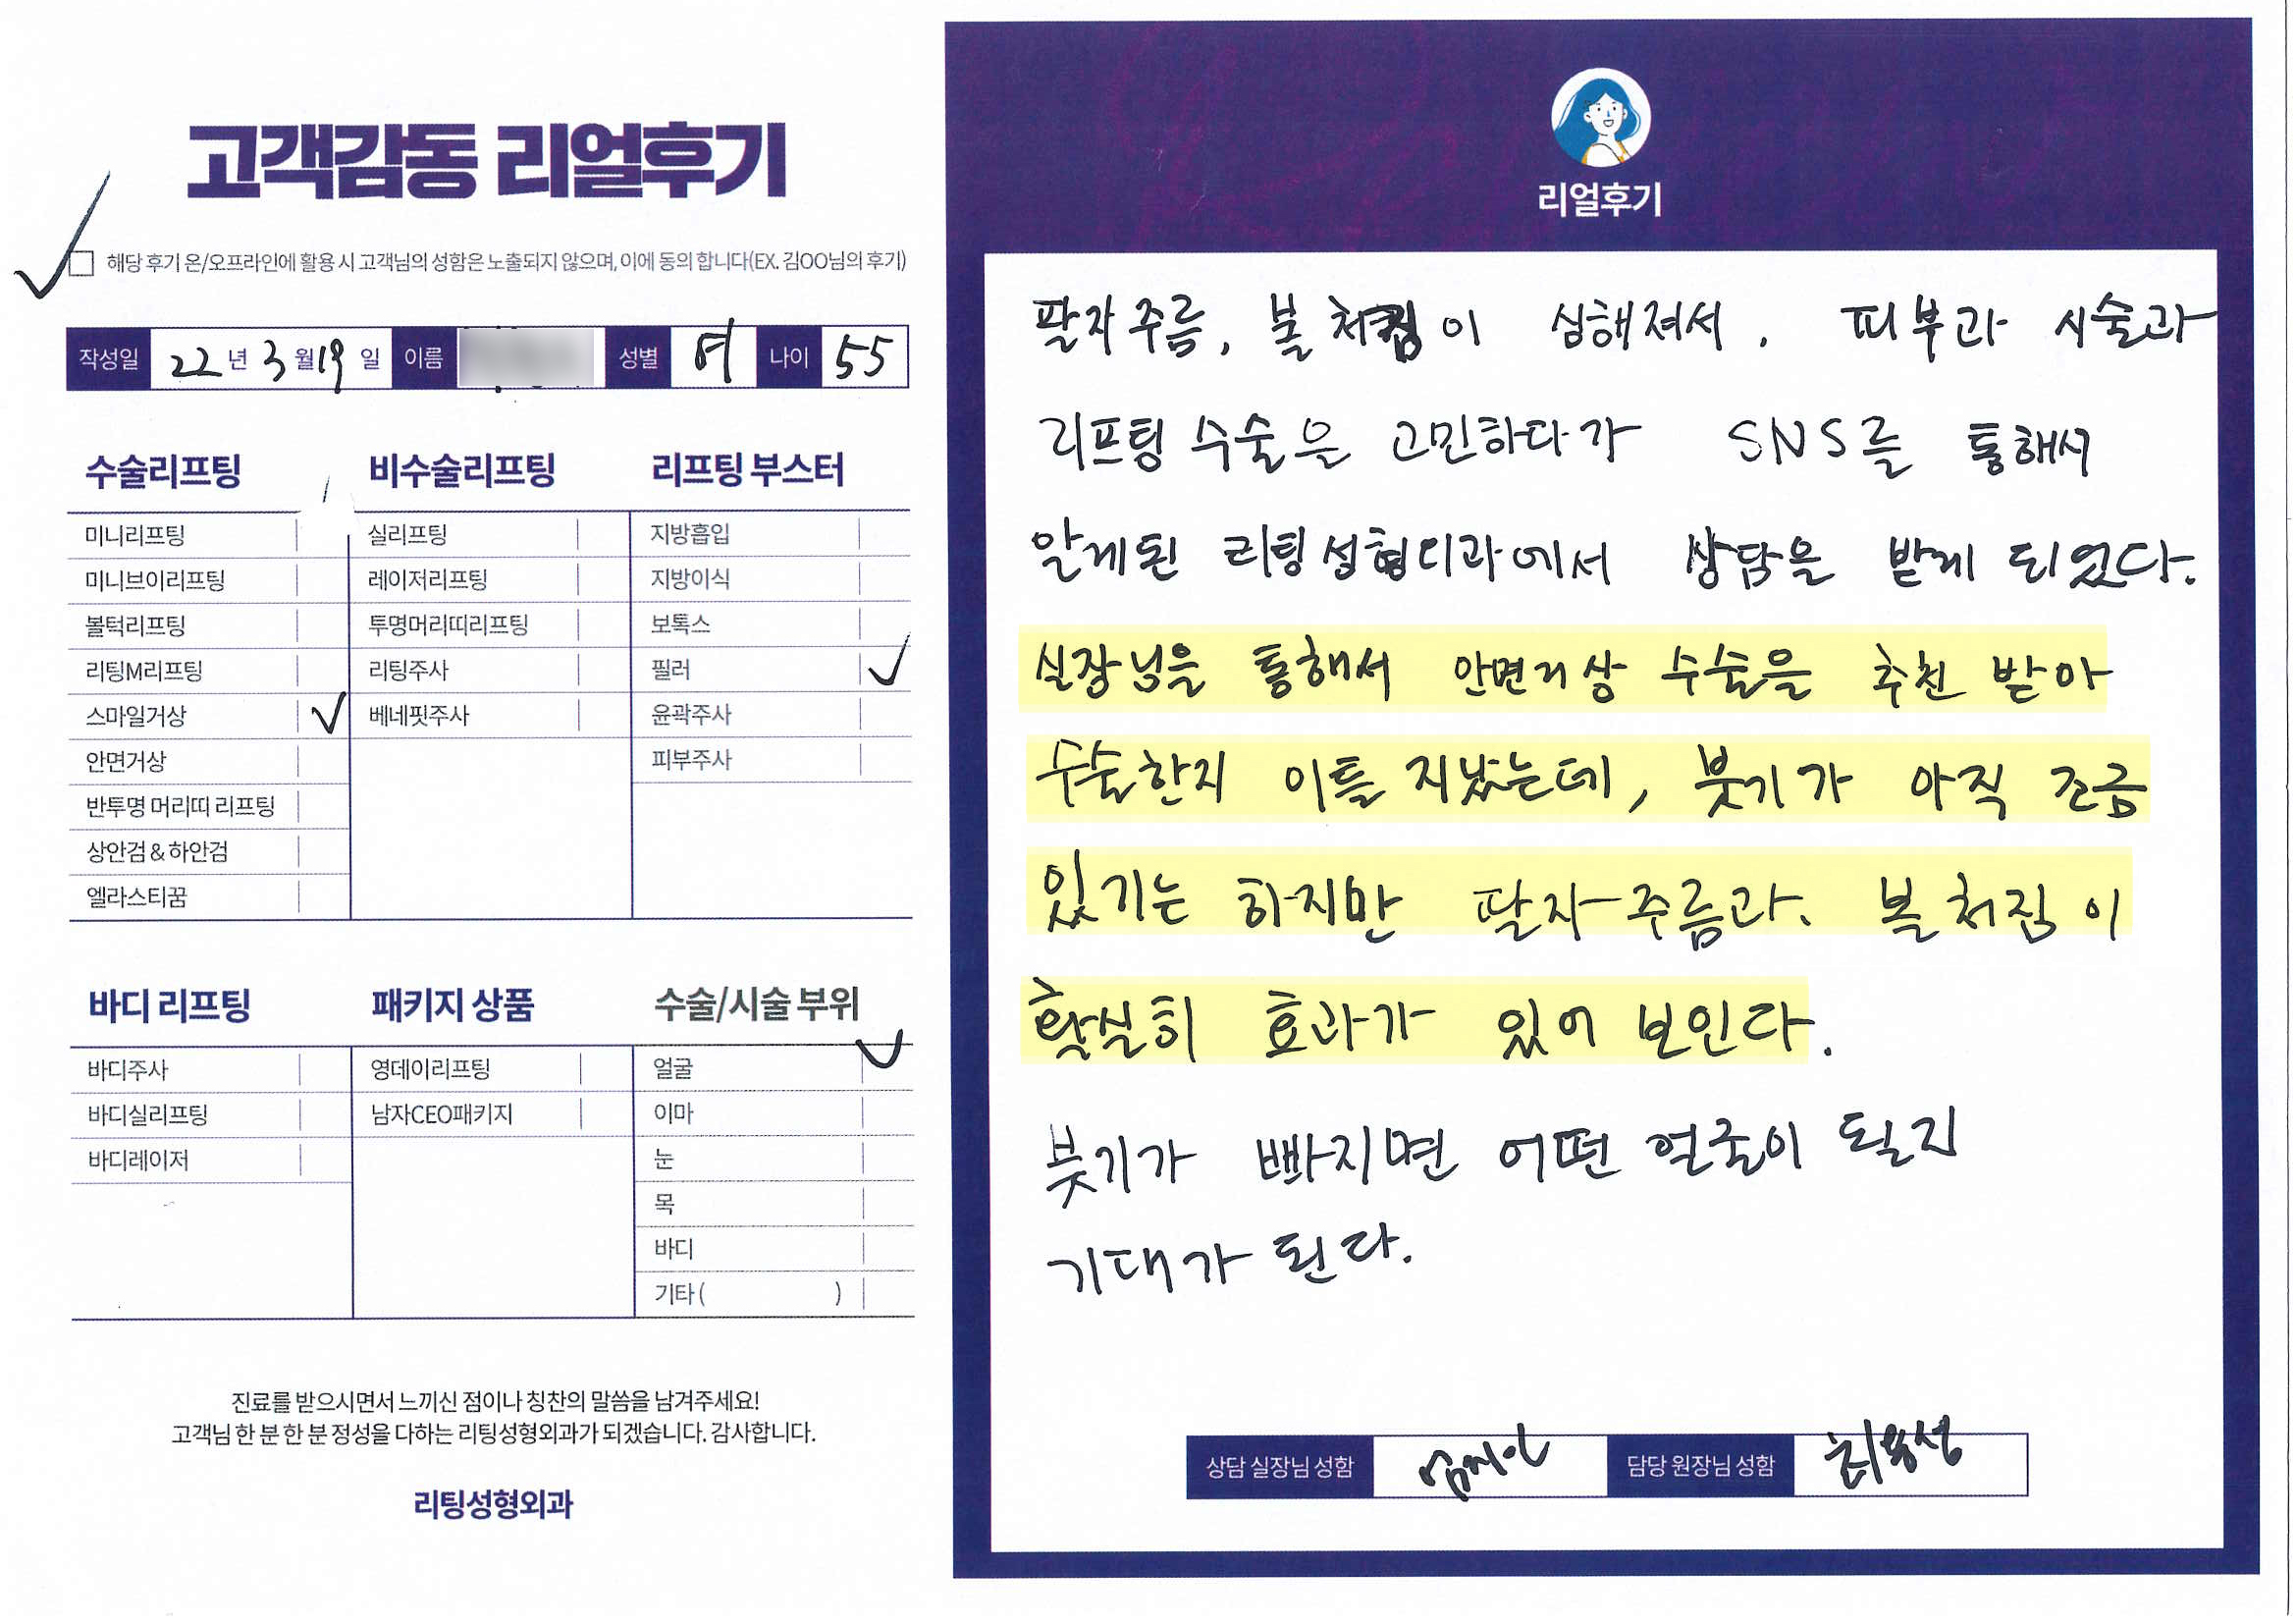 고객감동 리얼후기
해당 후기 온/오프라인에 활용 시 고객님의 성함은 노출되지 않으며, 이에 동의 합니다(EX. 김OO님의 후기)
작성일 22 년 3 월 19 일 이름 성별 여 나이 55
수술리프팅
미니리프팅
미니브이리프팅
볼턱리프팅
리팅M리프팅
스마일거상
안면거상
반투명 머리띠 리프팅
상안검 & 하안검
엘라스티꿈
비수술리프팅
실리프팅
레이저리프팅
투명머리띠리프팅
리팅주사
베네핏주사
리프팅 부스터
지방흡입
지방이식
보톡스
필러
윤곽주사
피부주사
바디 리프팅
바디주사
바디실리프팅
바디레이저
패키지 상품
영데이리프팅
남자CEO패키지
수술/시술 부위
얼굴
이마
눈
목
바디
기타 ( )
진료를 받으시면서 느끼신 점이나 칭찬의 말씀을 남겨주세요!
고객님 한 분 한 분 정성을 다하는 리팅성형외과가 되겠습니다. 감사합니다.
리팅성형외과
리얼후기
팔자주름, 볼 처짐이 심해져서. 피부과 시술과
리프팅 수술을 고민하다가 SNS를 통해서
알게된 리팅성형외과에서 상담을 받게 되었다.
실장님을 통해서 안면거상 수술을 추천 받아
수술한지 이틀 지났는데, 붓기가 아직 조금
있기는 하지만 팔자주름과. 볼처짐이
확실히 효과가 있어 보인다.
붓기가 빠지면 어떤 얼굴이 될지
기대가 된다.
상담 실장님 성함 담당 원장님 성함